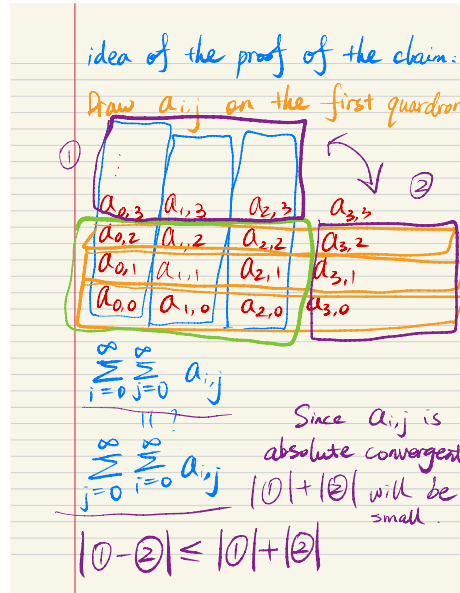 idea of the proof of the claim:
Draw a_{i,j} on the first quardron
①
②
⋮
a_{0,3} a_{1,3} a_{2,3} a_{3,3}
a_{0,2} a_{1,2} a_{2,2} a_{3,2}
a_{0,1} a_{1,1} a_{2,1} a_{3,1}
a_{0,0} a_{1,0} a_{2,0} a_{3,0}
∑_{i=0}^{∞} ∑_{j=0}^{∞} a_{i,j}
|| ?
∑_{j=0}^{∞} ∑_{i=0}^{∞} a_{i,j}
Since a_{i,j} is
absolute convergent
|①|+|②| will be
small.
|①-②| ≤ |①|+|②|